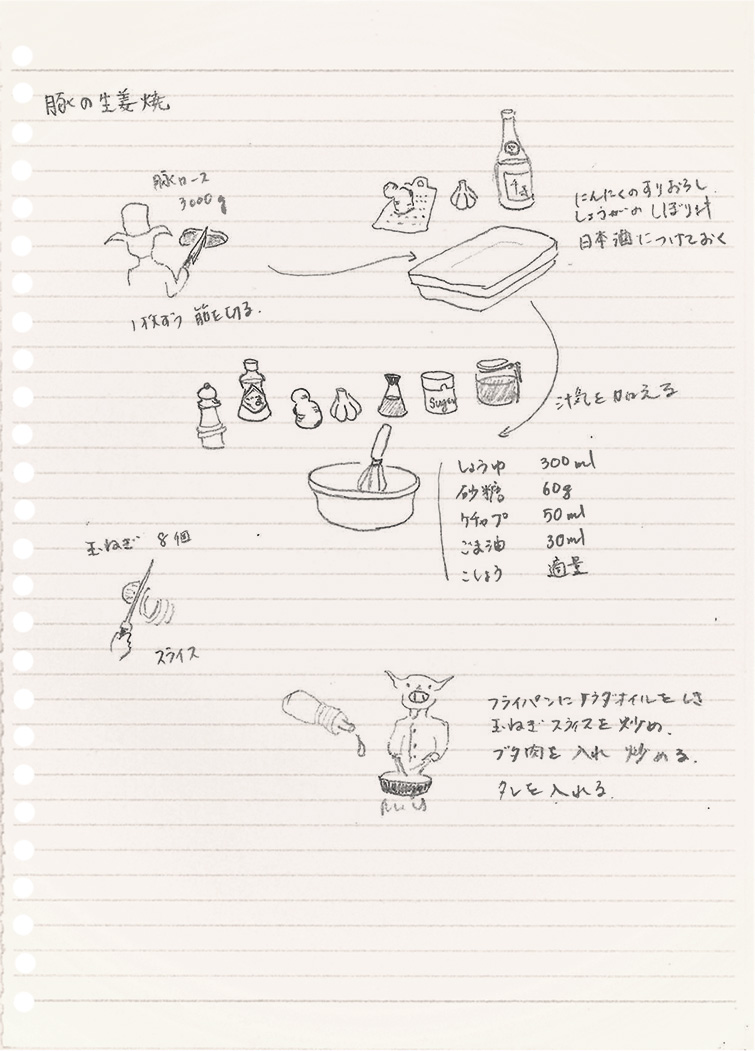 豚の生姜焼
豚ロース
3000g
1枚ずつ 筋を切る.
にんにくのすりおろし.
しょうがの しぼり汁
日本酒につけておく
汁気を加える
ごま
Sugar
しょうゆ 300ml
砂糖 60g
ケチャップ 50ml
ごま油 30ml
こしょう 適量
玉ねぎ 8個
スライス
フライパンに サラダオイルをしき
玉ねぎ スライスを炒め.
ブタ肉を 入れ 炒める.
タレを 入れる.